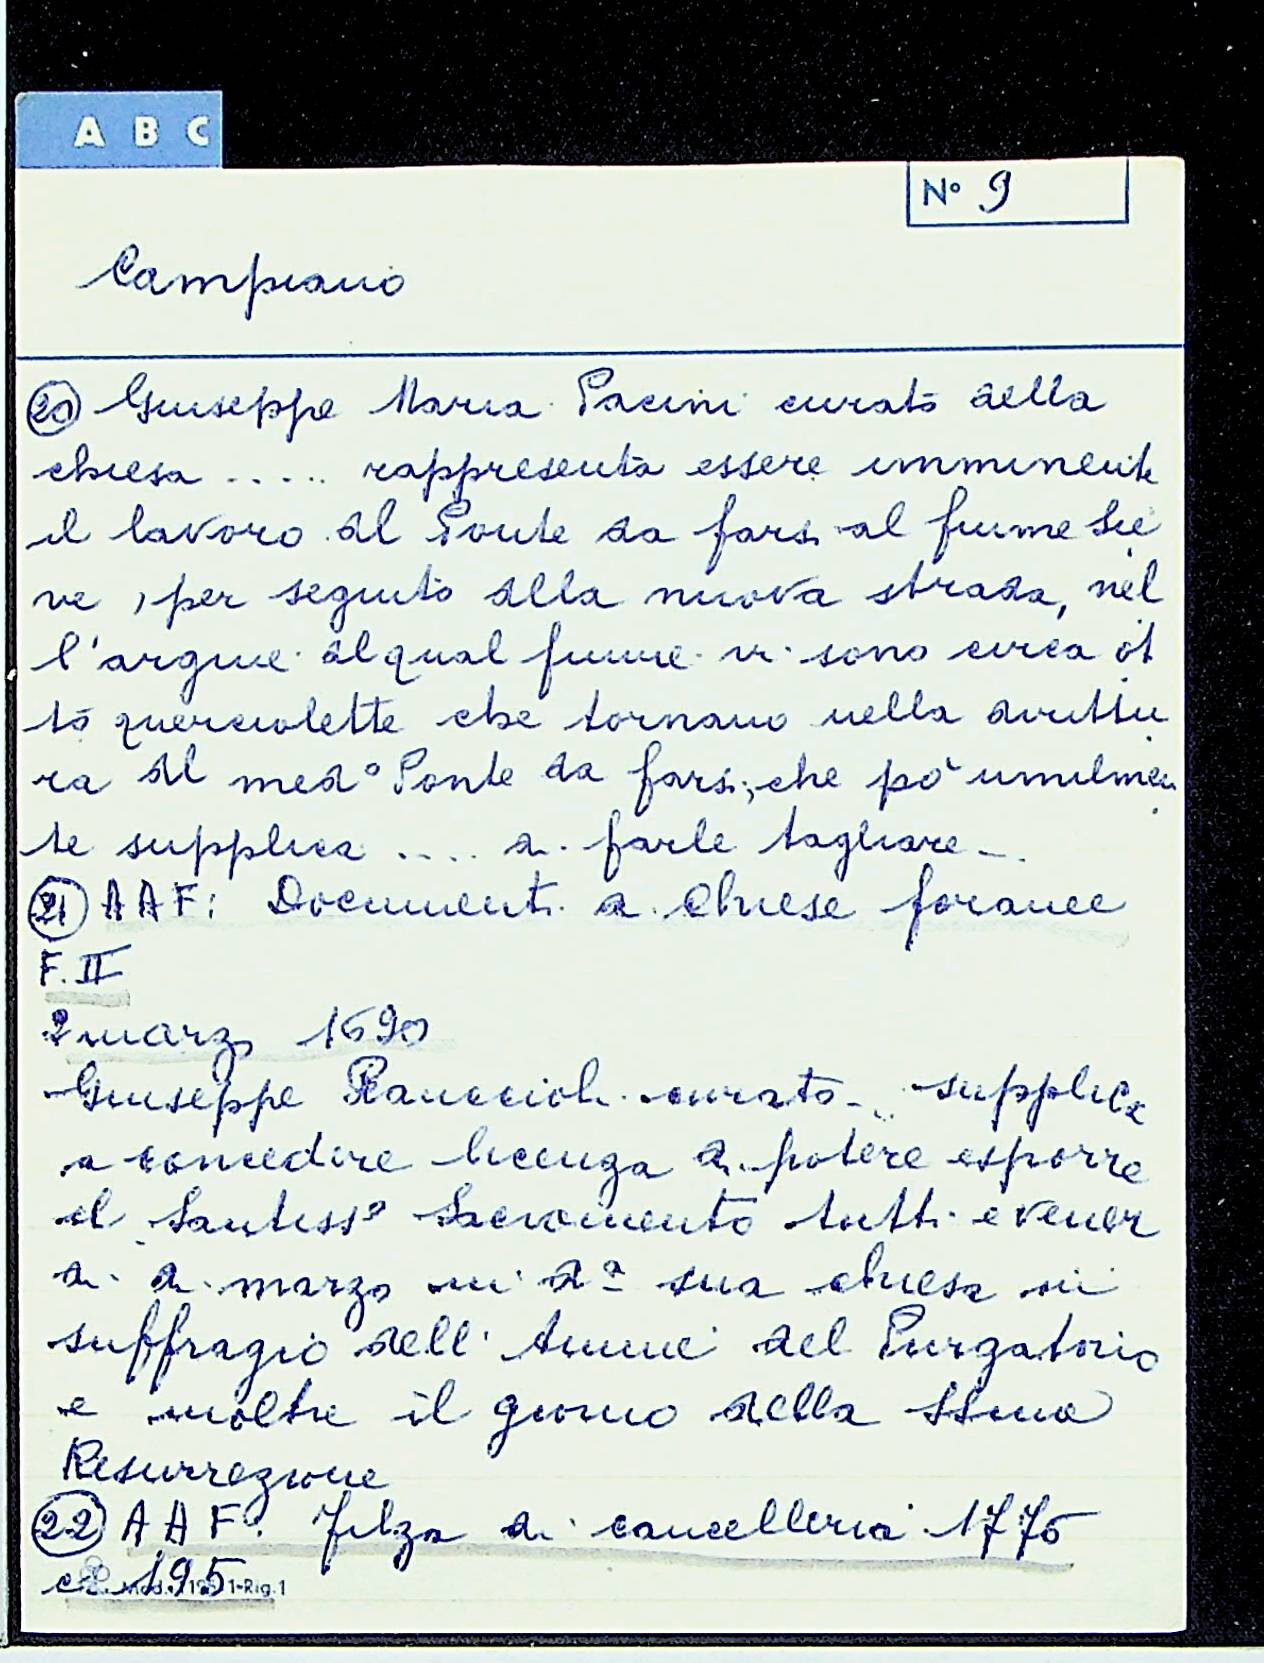 A B C
Nº 9
Campiano
20 Giuseppe Maria Pacini curato della
chiesa ..... rappresenta essere imminente
il lavoro del Ponte da farsi al fiume Sie
ve, per seguito della nuova strada, nel
l'argine del qual fiume vi sono circa ot
to querciolette che tornano nella drittu
ra del medº Ponte da farsi, che pò umilmen
te supplica .... di farle tagliare -.
21 AAF: Documenti di Chiese foranee
F. II
2 marzo 1690
Giuseppe curato ... supplica
a concedere licenza di potere esporre
il Santissº Sacramento tutti e vener
di di marzo in dª sua chiesa in
suffragio dell'Anime del Purgatorio
e inoltre il giorno della SSma
Resurrezione
22 AAF. Filza di cancelleria 1775
c. 195
1-Rig.1